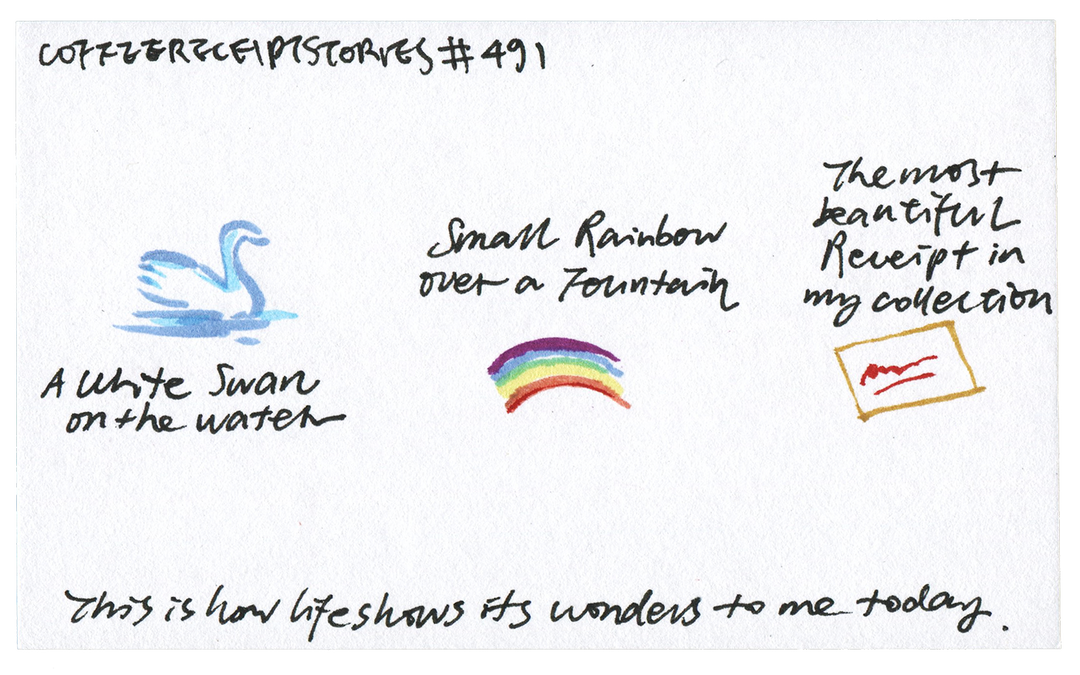 COFFEERECEIPTSTORIES #491
The most
beautiful
Receipt in
my collection
Small Rainbow
over a Fountain
A White Swan
on the water
This is how life shows its wonders to me today.